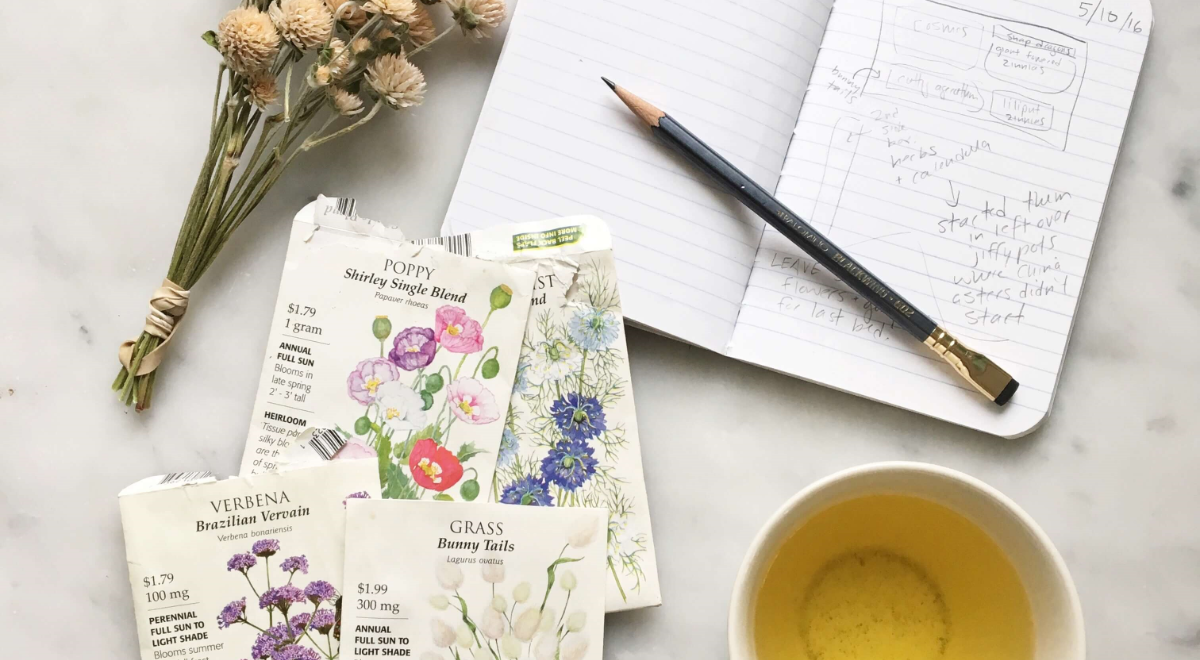 5/10/16
cosmos
snap dragons
giant
zinnias
bunny
tails
liliput
zinnias
2nd
side
herbs
+ calendula
started them
in left over
jiffy pots
where china
asters didn't
start
LEAVE
flowers
for last bed!
BLACKWING 602
PEEL BACK FLAPS
MORE INFO INSIDE
POPPY
Shirley Single Blend
Papaver rhoeas
$1.79
1 gram
ANNUAL
FULL SUN
Blooms in
late spring
2' - 3' tall
HEIRLOOM
Tissue
silky
are
of
IST
nd
VERBENA
Brazilian Vervain
Verbena bonariensis
$1.79
100 mg
PERENNIAL
FULL SUN TO
LIGHT SHADE
Blooms summer
GRASS
Bunny Tails
Lagurus ovatus
$1.99
300 mg
ANNUAL
FULL SUN TO
LIGHT SHADE